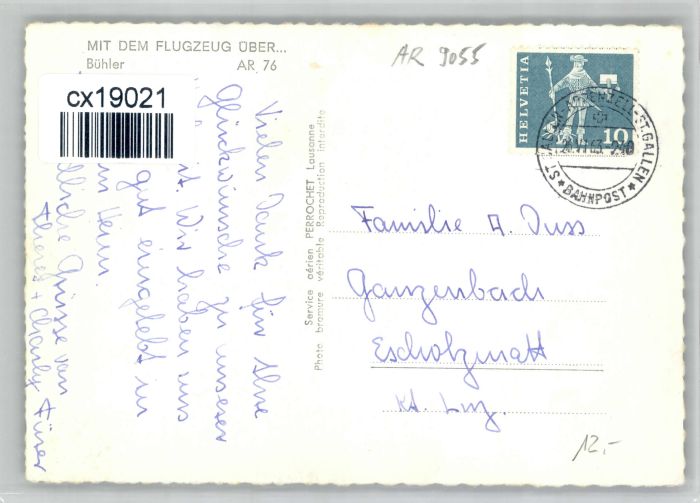 MIT DEM FLUGZEUG ÜBER...
Bühler AR 76
cx19021
AR 9055
HELVETIA
10
ST. GALLEN
★ BAHNPOST ★
Vielen Dank für Ihre
Glückwünsche zu unserer
Wir haben uns
gut eingelebt in
Heim.
Grüsse von
+ Charly
Service aérien PERROCHET Lausanne
Photo bromure véritable Reproduction interdite
Familie A. Duss
Ganzenbach
Escholzmatt
Kt. Luz.
12.-